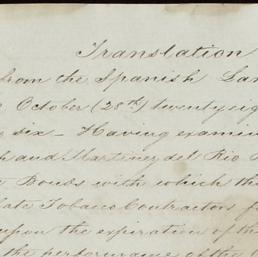 Translation
from the Spanish Lan
October (28th) twenty eig
six – Having examin
and Martinez del Rio
Bonds with which the
late Tobacco Contractors f
upon the expiration of the
the performance of the